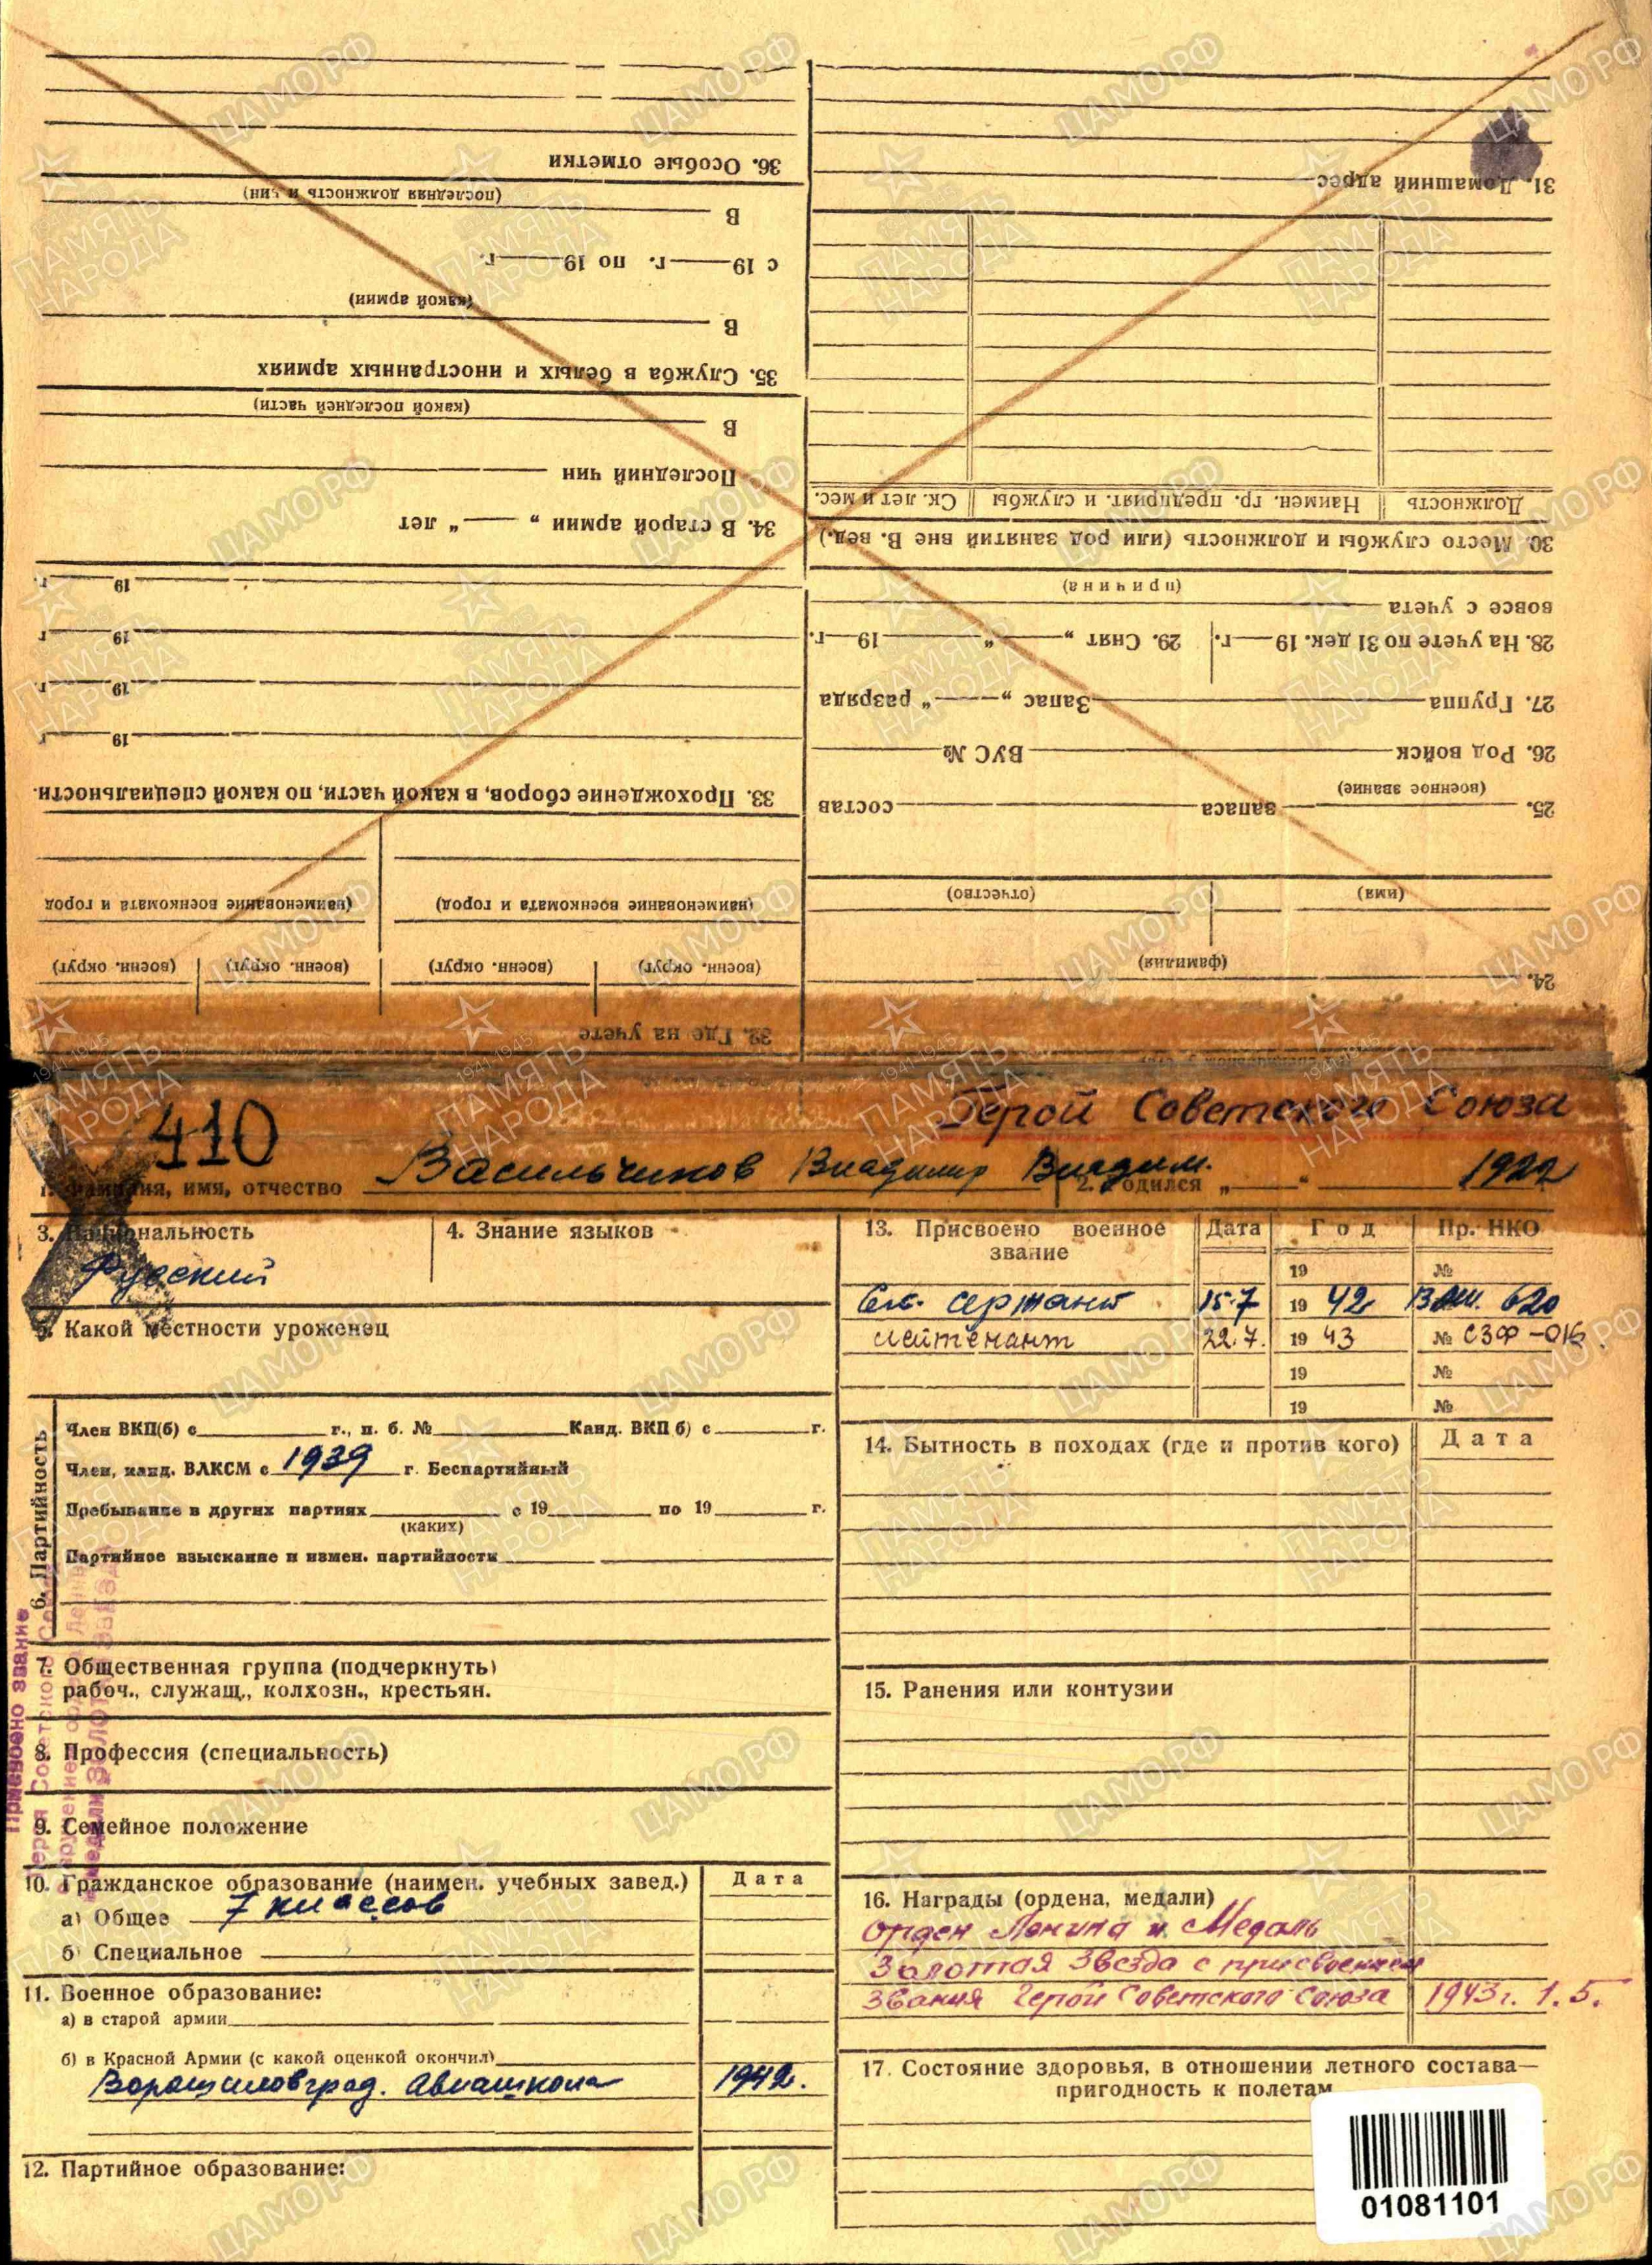 36. Особые отметки
(последняя должность и чин)
В
с 19 г. по 19 г.
(какой армии)
В
35. Служба в белых и иностранных армиях
(какой последней части)
В
Последний чин
34. В старой армии „ “ лет
19 г.
19 г.
19 г.
19 г.
33. Прохождение сборов, в какой части, по какой специальности.
(наименование военкомата и город) (наименование военкомата и город)
(воен. округ) (воен. округ) (воен. округ) (воен. округ)
32. Где на учете
31. Домашний адрес
Должность Наимен. гр. предприят. и службы Ск. лет и мес.
30. Место службы и должность (или род занятий вне В. вед.)
(причина)
вовсе с учета
28. На учете по 31 дек. 19 г. 29. Снят „ “ 19 г.
27. Группа Запас „ “ разряда
26. Род войск ВУС №
(военное звание)
25. запаса состав
(имя) (отчество)
(фамилия)
24.
410
Герой Советского Союза
1. Фамилия, имя, отчество Васильчиков Владимир Владим. 2. Родился „ “ 1922
3. Национальность
Русский
4. Знание языков
5. Какой местности уроженец
6. Партийность
Член ВКП(б) с г., п. б. № Канд. ВКП б) с г.
Член, канд. ВЛКСМ с 1939 г. Беспартийный
Пребывание в других партиях с 19 по 19 г.
(каких)
Партийное взыскание и измен. партийности
Присвоено звание
Героя Советского Союза
7. Общественная группа (подчеркнуть)
рабоч., служащ., колхозн., крестьян.
8. Профессия (специальность)
9. Семейное положение
10. Гражданское образование (наимен. учебных завед.) Дата
а) Общее 7 классов
б) Специальное
11. Военное образование:
а) в старой армии
б) в Красной Армии (с какой оценкой окончил)
Ворошиловград. Авиашкола 1942.
12. Партийное образование:
13. Присвоено военное звание Дата Год Пр. НКО
19 №
Ст. сержант 15.7 19 42 ВАШ. 620
лейтенант 22.7. 19 43 № СЗФ-016
19 №
19 №
14. Бытность в походах (где и против кого) Дата
15. Ранения или контузии
16. Награды (ордена, медали)
Орден Ленина и Медаль
Золотая Звезда с присвоением
Звания Герой Советского Союза 1943г. 1.5.
17. Состояние здоровья, в отношении летного состава—
пригодность к полетам
01081101
ЦАМО РФ
ПАМЯТЬ
НАРОДА
1941-1945